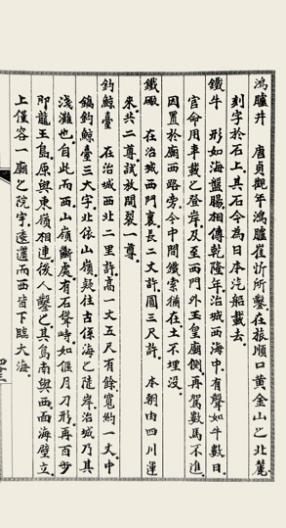 鴻臚井　唐貞觀年鴻臚崔忻所鑿在旅順口黃金山之北麓
刻字於石上其石今為日本汽船載去
鐵牛　形如海盤腸相傳乾隆年治城西海中有聲如牛數日
官命用車載之登岸及至西門外玉皇廟側再駕數馬不進
因置於廟西路旁今中間鐵索猶在土不埋沒
鐵礮　在治城西門裏長二丈許圓三尺許　本朝由四川運
來共二尊試放開裂一尊
釣鯨臺　在治城西北二里許高一丈五尺有餘寬約一丈中
鎬釣鯨臺三大字北依山嶺疑往古係海之陸岸治城乃其
淺灘也自此而西山嶺斷處有石聳峙如偃月刀形再百步
即龍王島原與東嶺相連後人鑿之其島南與西面海壁立
上僅容一廟之院宇遠邇而西皆下臨大海